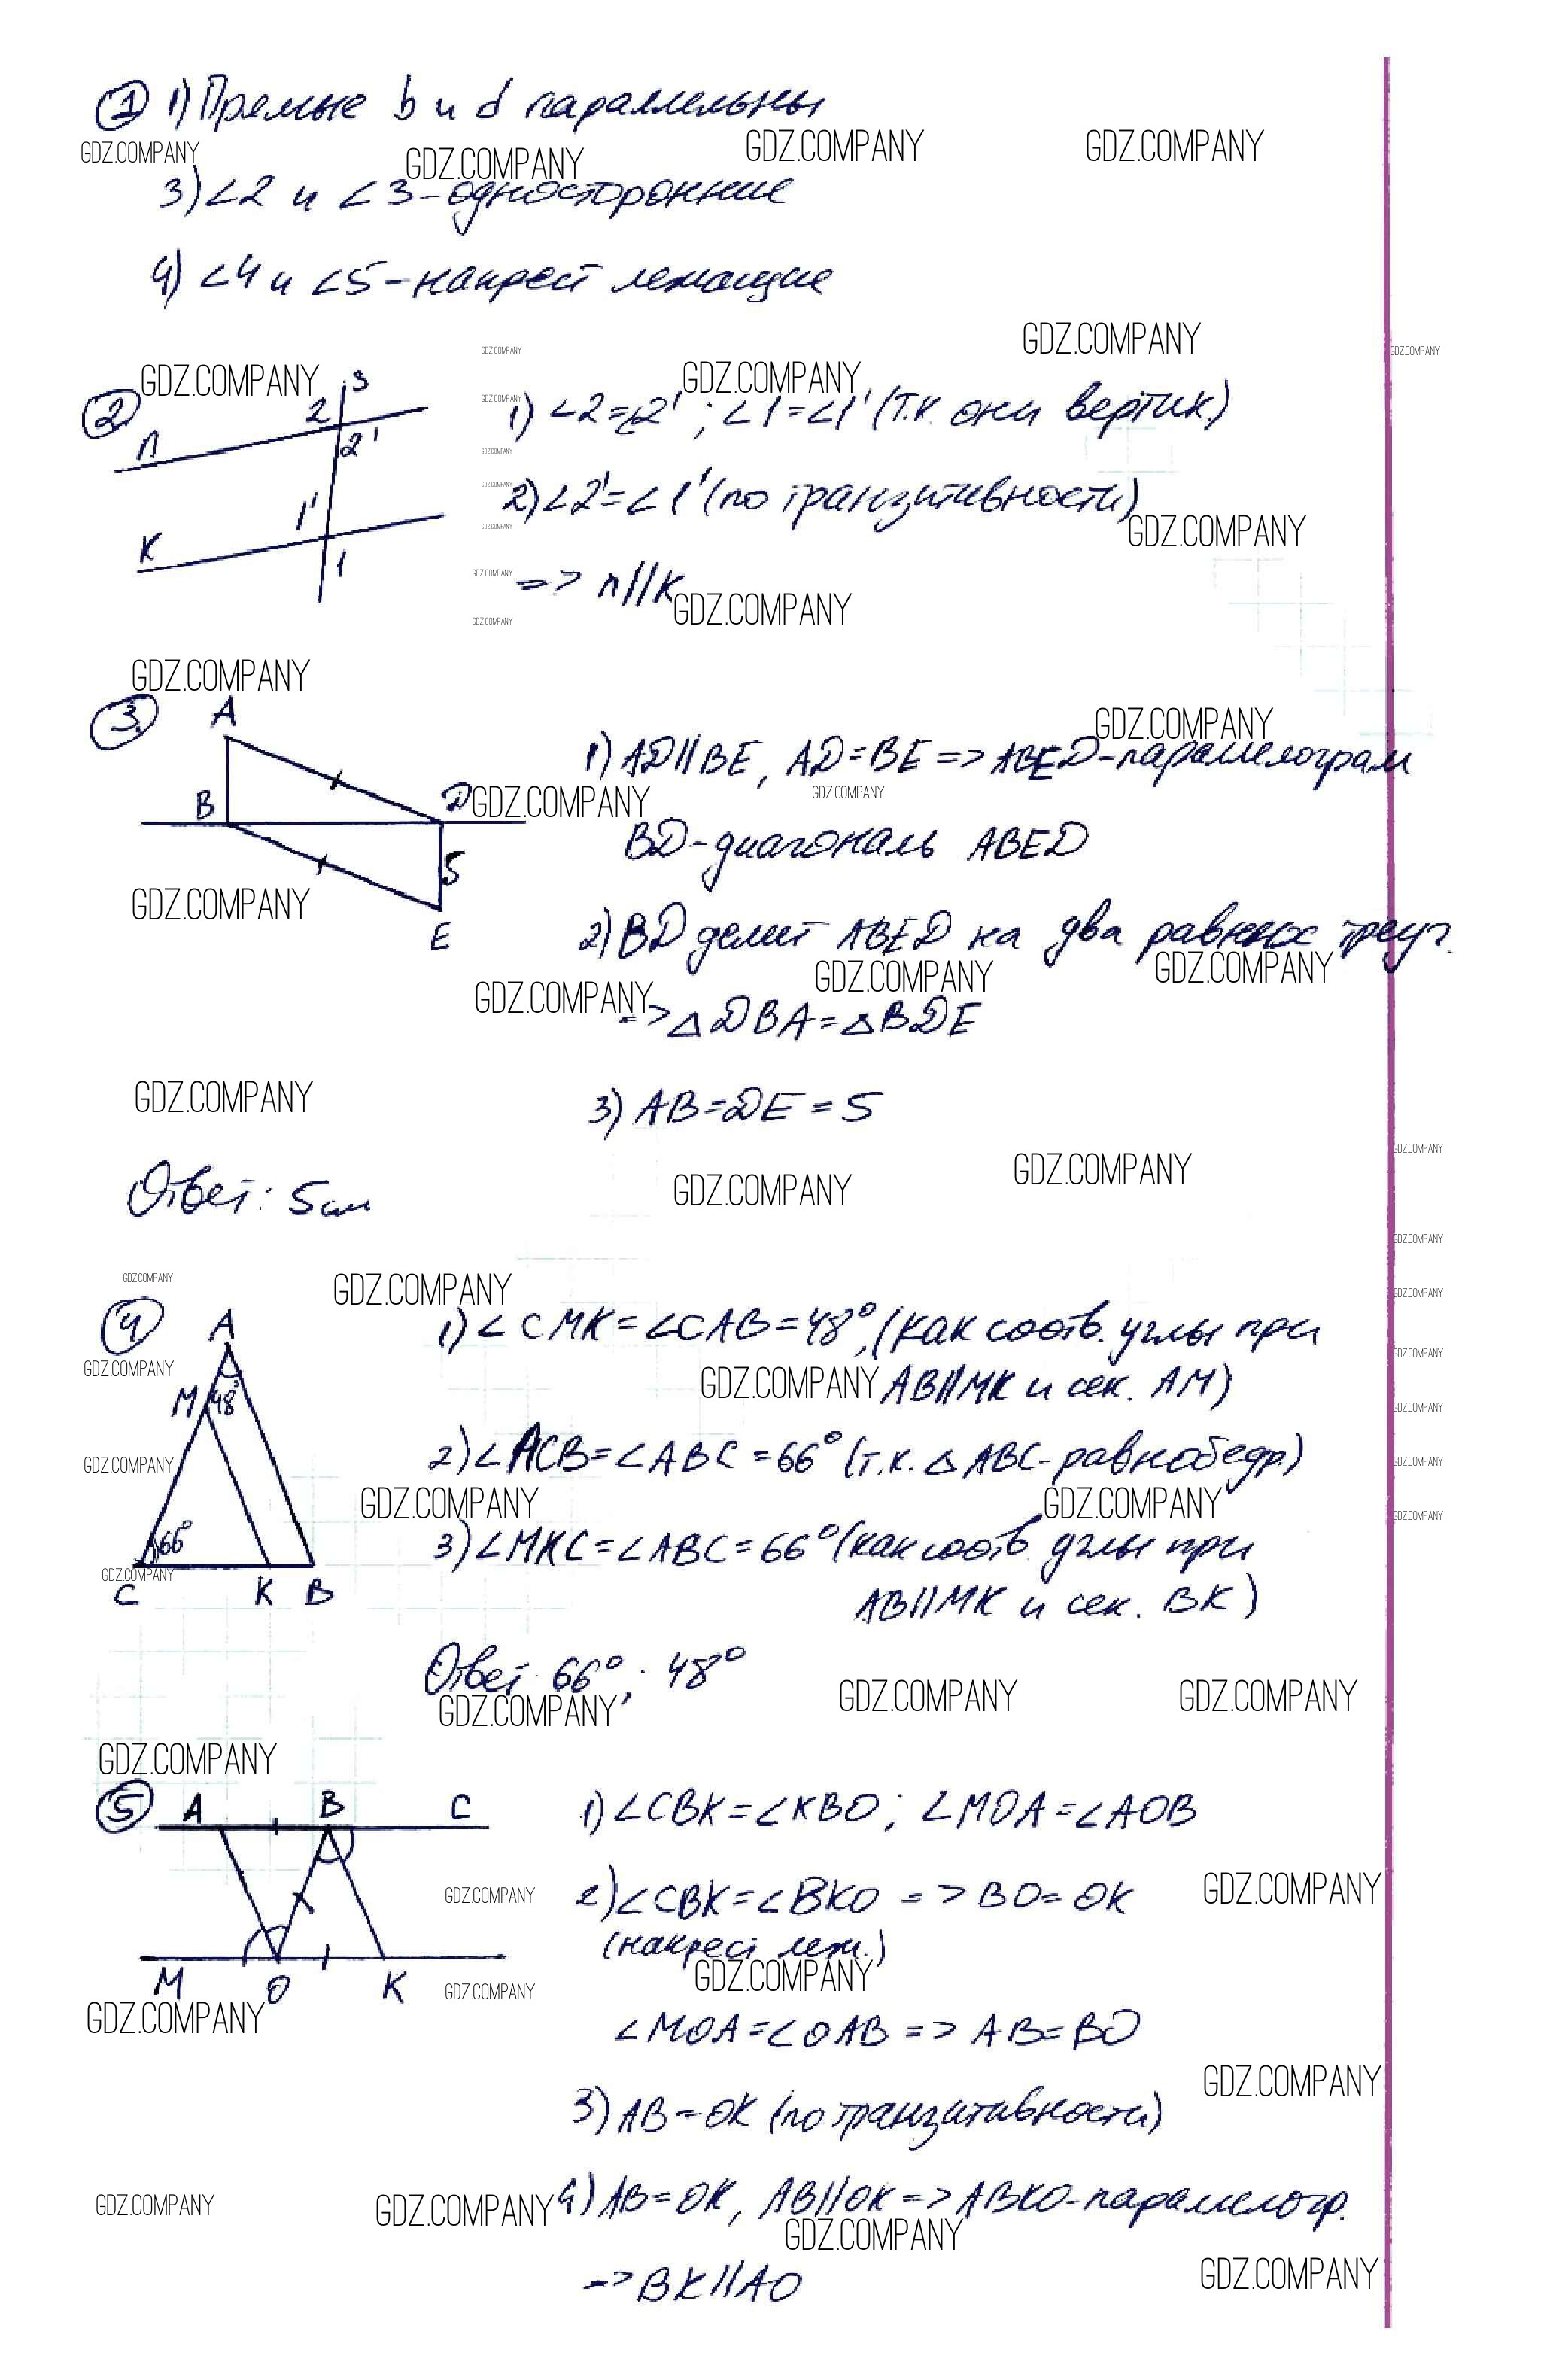 1 1) Прямые b и d параллельны
3) ∠2 и ∠3 - односторонние
4) ∠4 и ∠5 - накрест лежащие
2
n
K
3
2
2'
1'
1
1) ∠2=∠2' ; ∠1=∠1' (т.к. они вертик.)
2) ∠2'=∠1' (по транзитивности)
=> n//K
3
A
B
D
5
E
1) AD//BE, AD=BE => ABED - параллелограм
BD - диагональ ABED
2) BD делит ABED на два равных треуг.
=> △DBA=△BDE
3) AB=DE=5
Ответ: 5 см
4
A
M
48°
66°
C K B
1) ∠CMK=∠CAB=48°, (как соотв. углы при
AB//MK и сек. AM)
2) ∠ACB=∠ABC=66° (т.к. △ABC - равнобедр.)
3) ∠MKC=∠ABC=66° (как соотв. углы при
AB//MK и сек. BK)
Ответ: 66°; 48°
5
A B C
M O K
1) ∠CBK=∠KBO; ∠MOA=∠AOB
2) ∠CBK=∠BKO => BO=OK
(накрест леж.)
∠MOA=∠OAB => AB=BO
3) AB=OK (по транзитивности)
4) AB=OK, AB//OK => ABKO - параллелогр.
=> BK//AO
GDZ.COMPANY